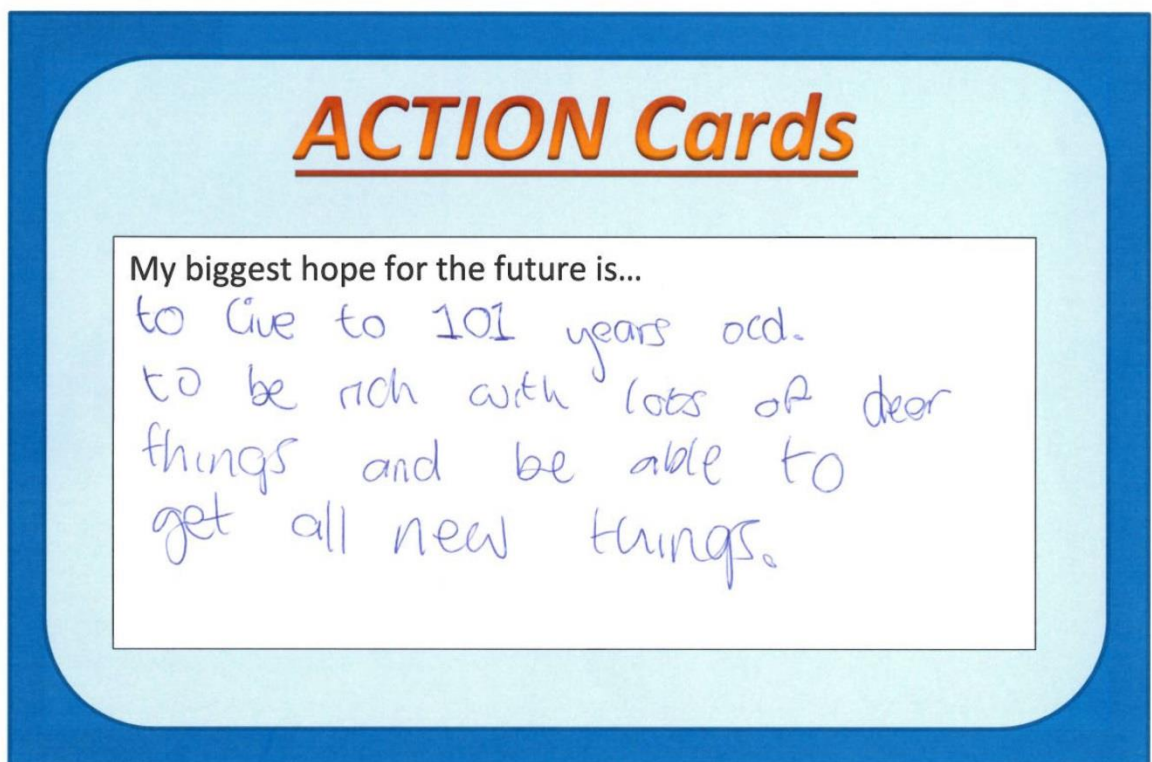 ACTION Cards
My biggest hope for the future is...
to live to 101 years old.
to be rich with lots of dear
things and be able to
get all new things.